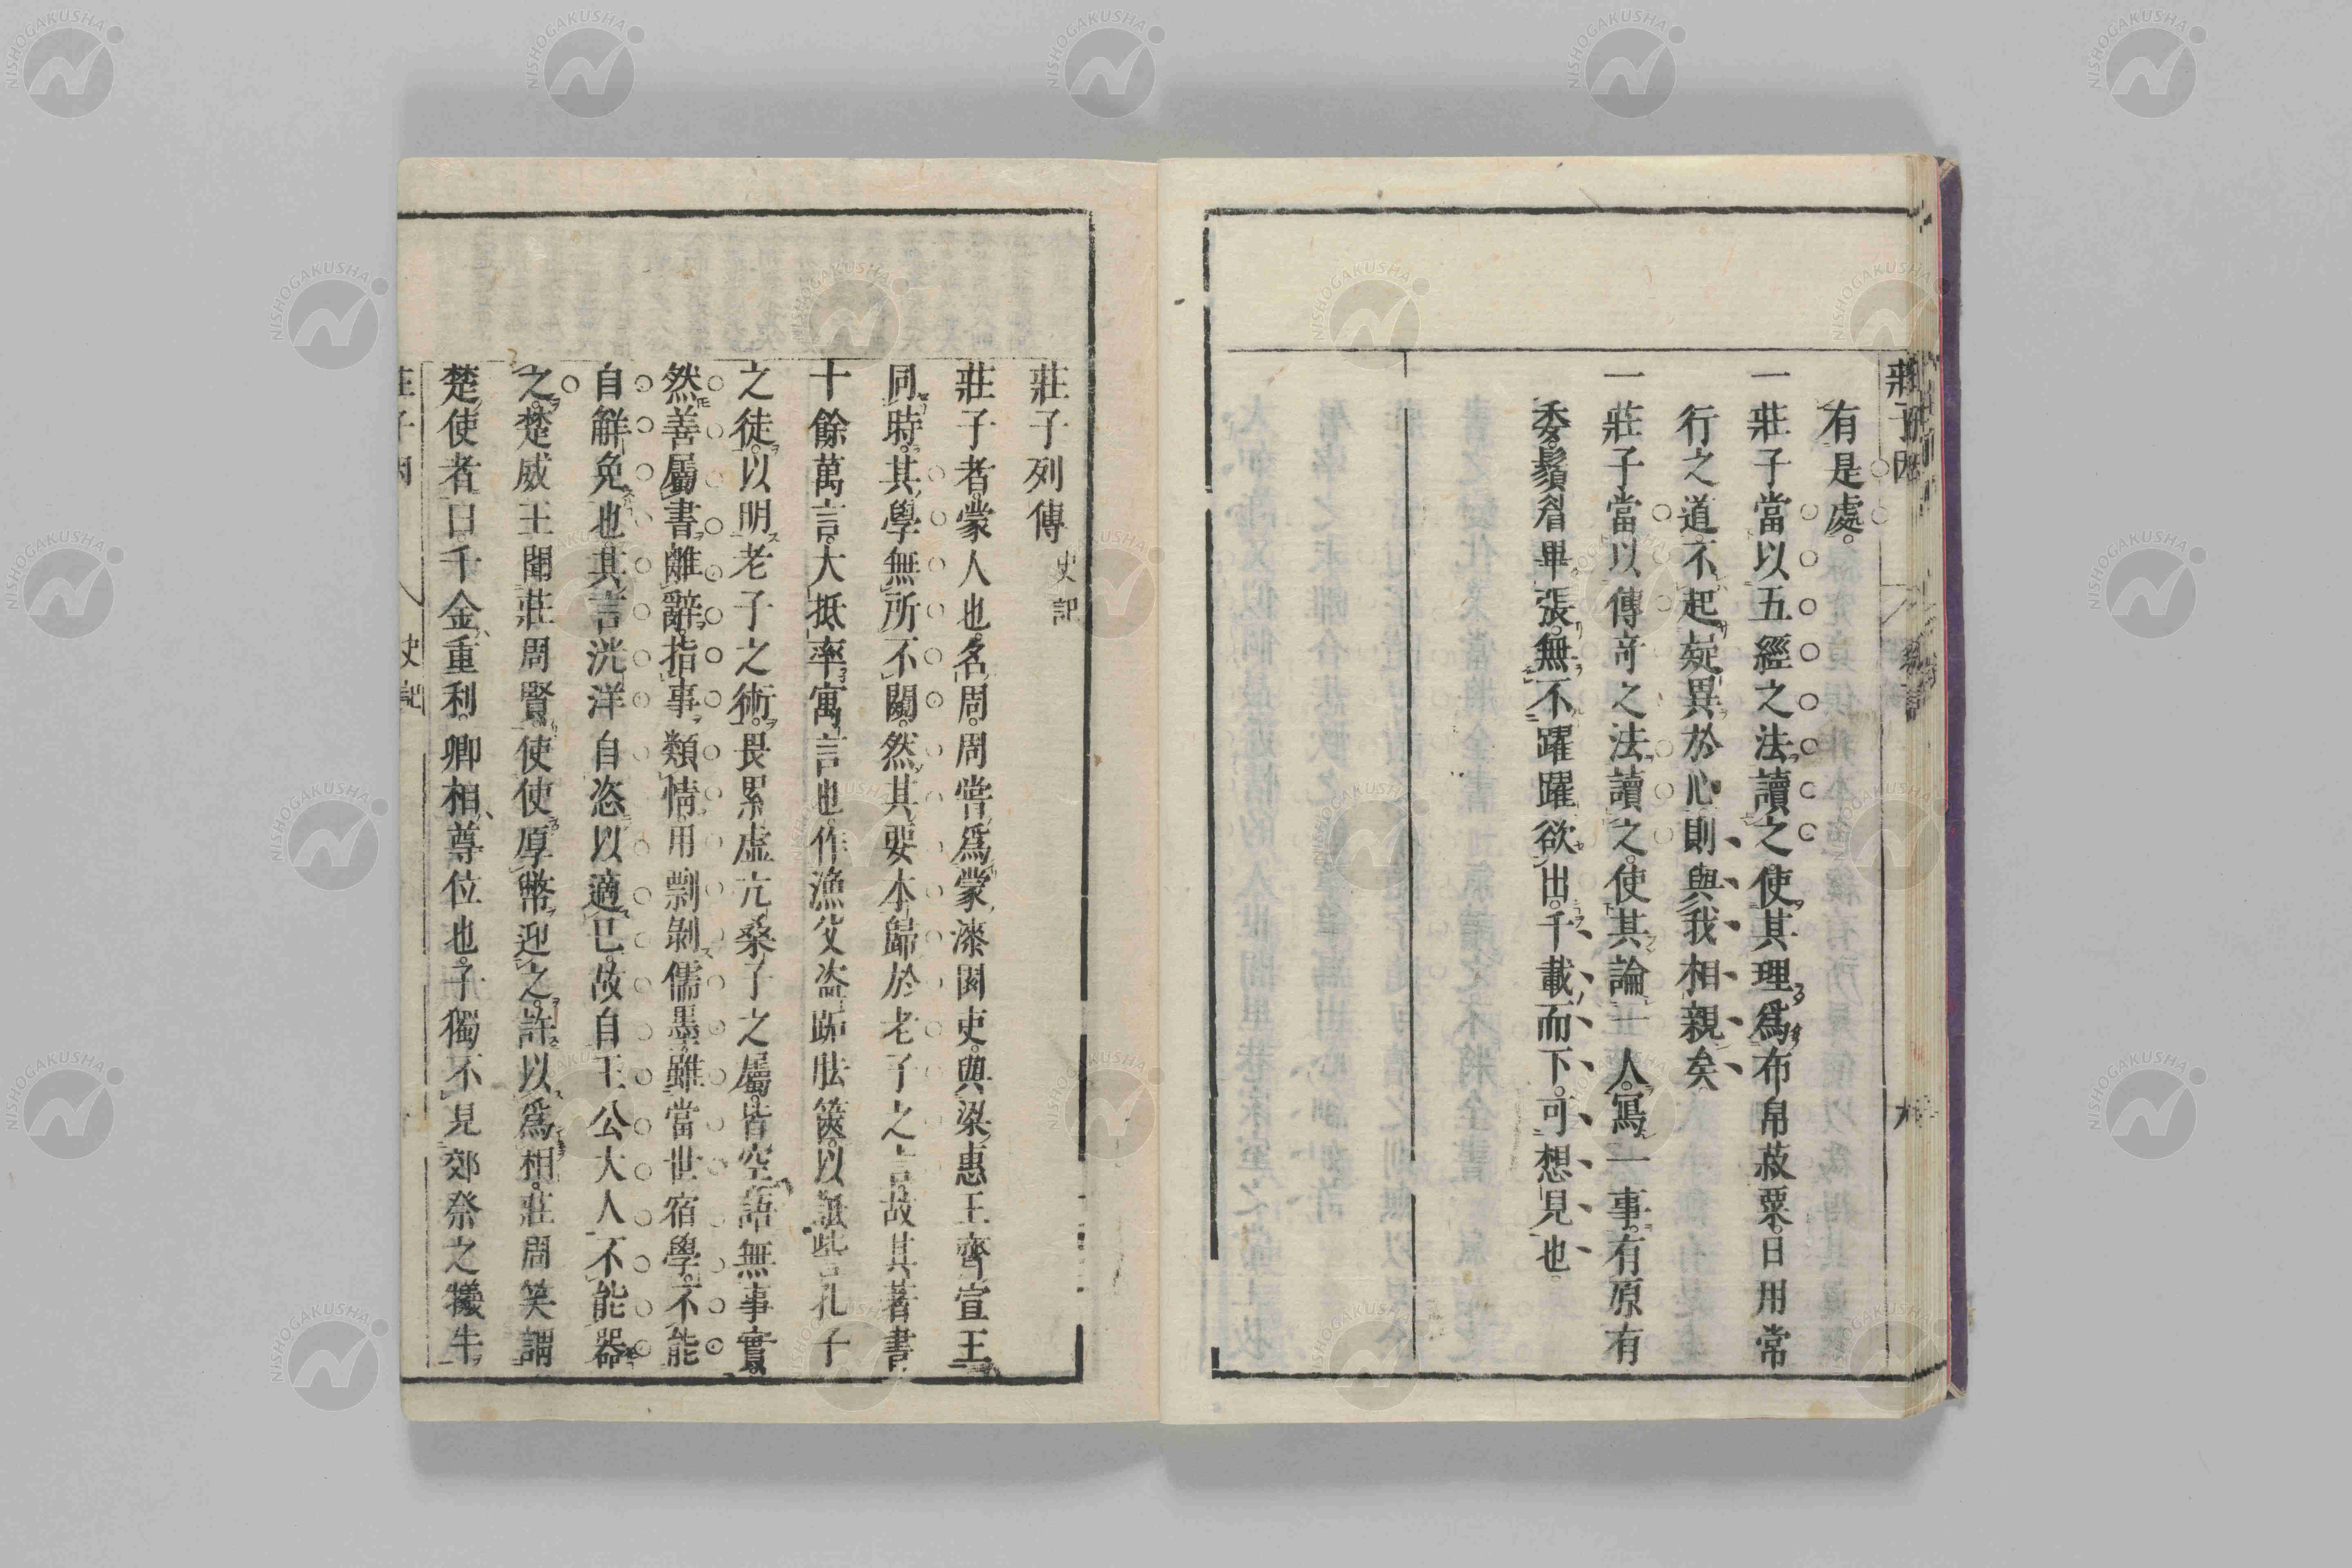 有是處。
一莊子當以五經之法讀之使其理爲布帛菽粟。日用常
行之道。不起疑異於心則與我相親矣
一莊子當以傳奇之法讀之。使其論一人。寫一事。有原有
委。鬚眉畢張。無不躍躍欲出。千載而下。可想見也。
莊子列傳 史記
莊子者。蒙人也。名周。周嘗爲蒙漆園吏。與梁惠王齊宣王
同時。其學無所不闚。然其要本歸於老子之言。故其著書
十餘萬言。大抵率寓言也。作漁父盜跖胠篋。以詆訾孔子
之徒。以明老子之術。畏累虛亢桑子之屬。皆空語無事實。
然善屬書離辭。指事類情。用剽剝儒墨。雖當世宿學。不能
自解免也。其言洸洋自恣以適已。故自王公大人不能器
之。楚威王聞莊周賢。使使厚幣迎之。許以爲相。莊周笑謂
楚使者曰。千金重利。卿相尊位也。子獨不見郊祭之犧牛
莊子因
史記
NISHOGAKUSHA